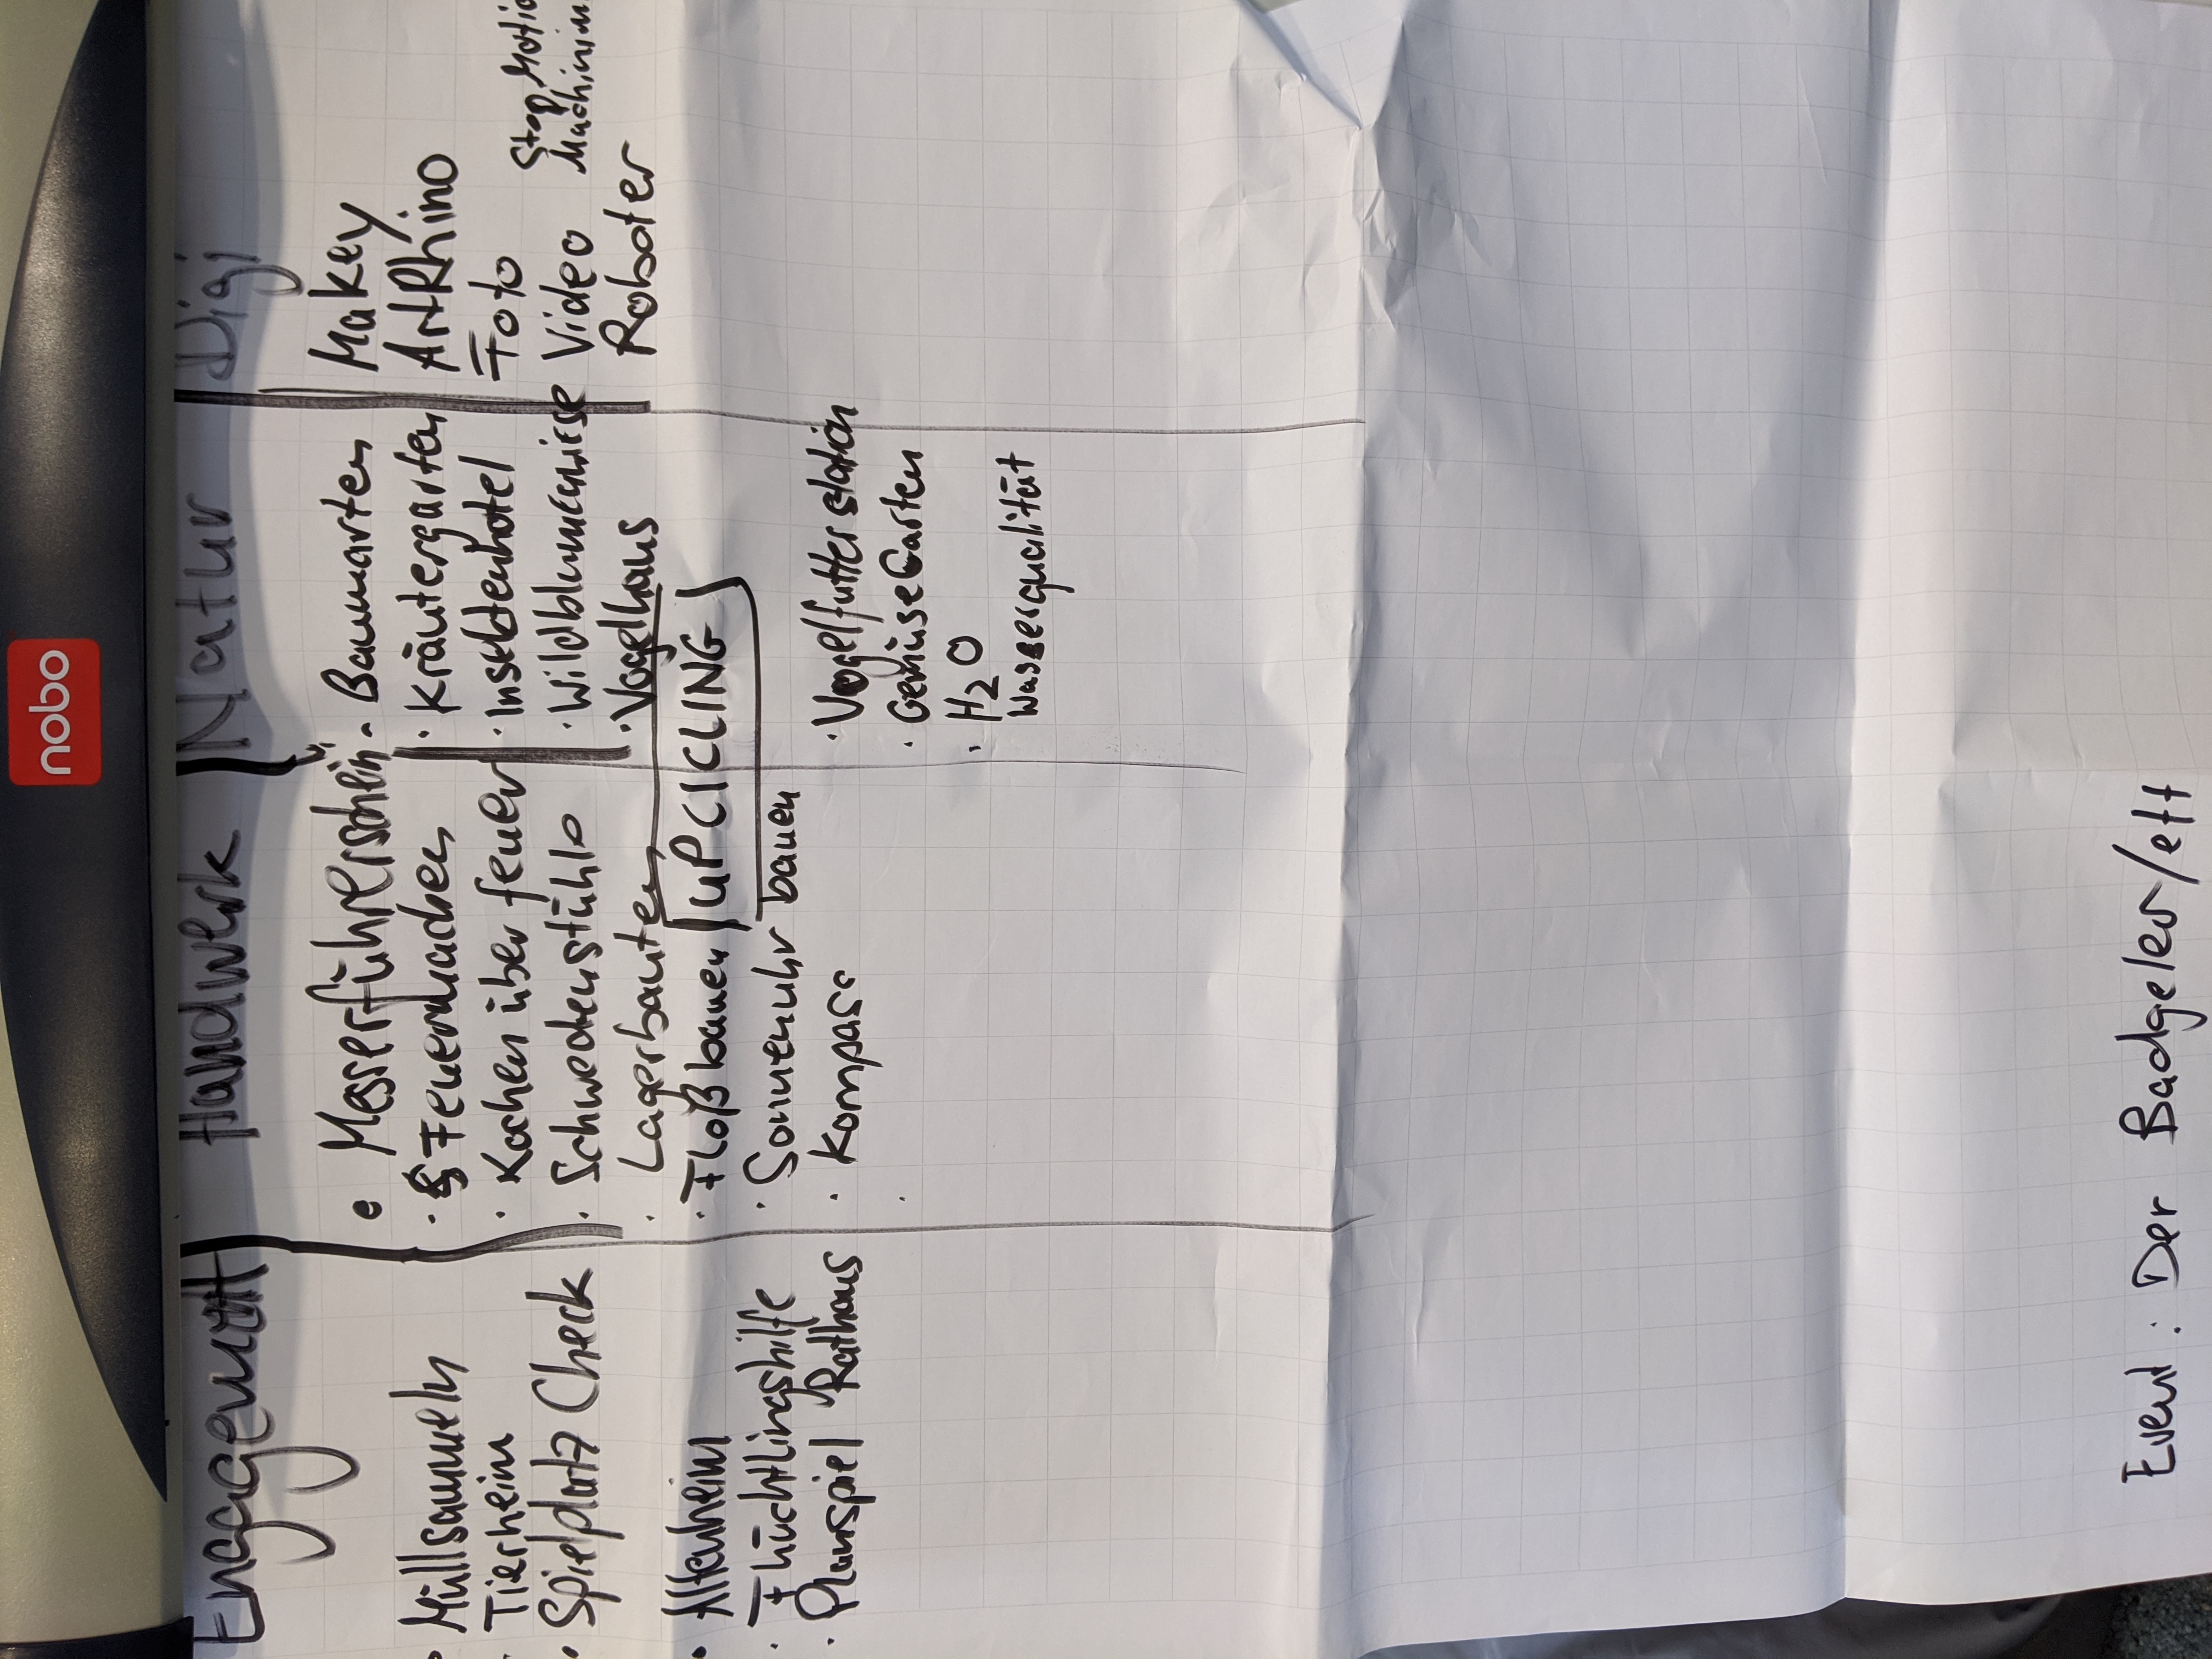 nobo
Engagement
Müllsammeln
Tierheim
Spielplatz Check
Altenheim
Flüchtlingshilfe
Planspiel Rathaus
Handwerk
Messerführerschein
Feuermachen
Kochen über feuer
Schwedenstühle
Lagerbauten
Floß bauen
Sonnenuhr bauen
Kompass
UPCICLING
Natur
Baumarten
Kräutergarten
Insektenhotel
Wildblumenwiese
Vogelhaus
Vogelfutterstation
GemüseGarten
H2O
Wasserqualität
Digi
Makey
ArtRhino
Foto
Video
Stop Motio
Machinim
Roboter
Event: Der Badgeler/ett